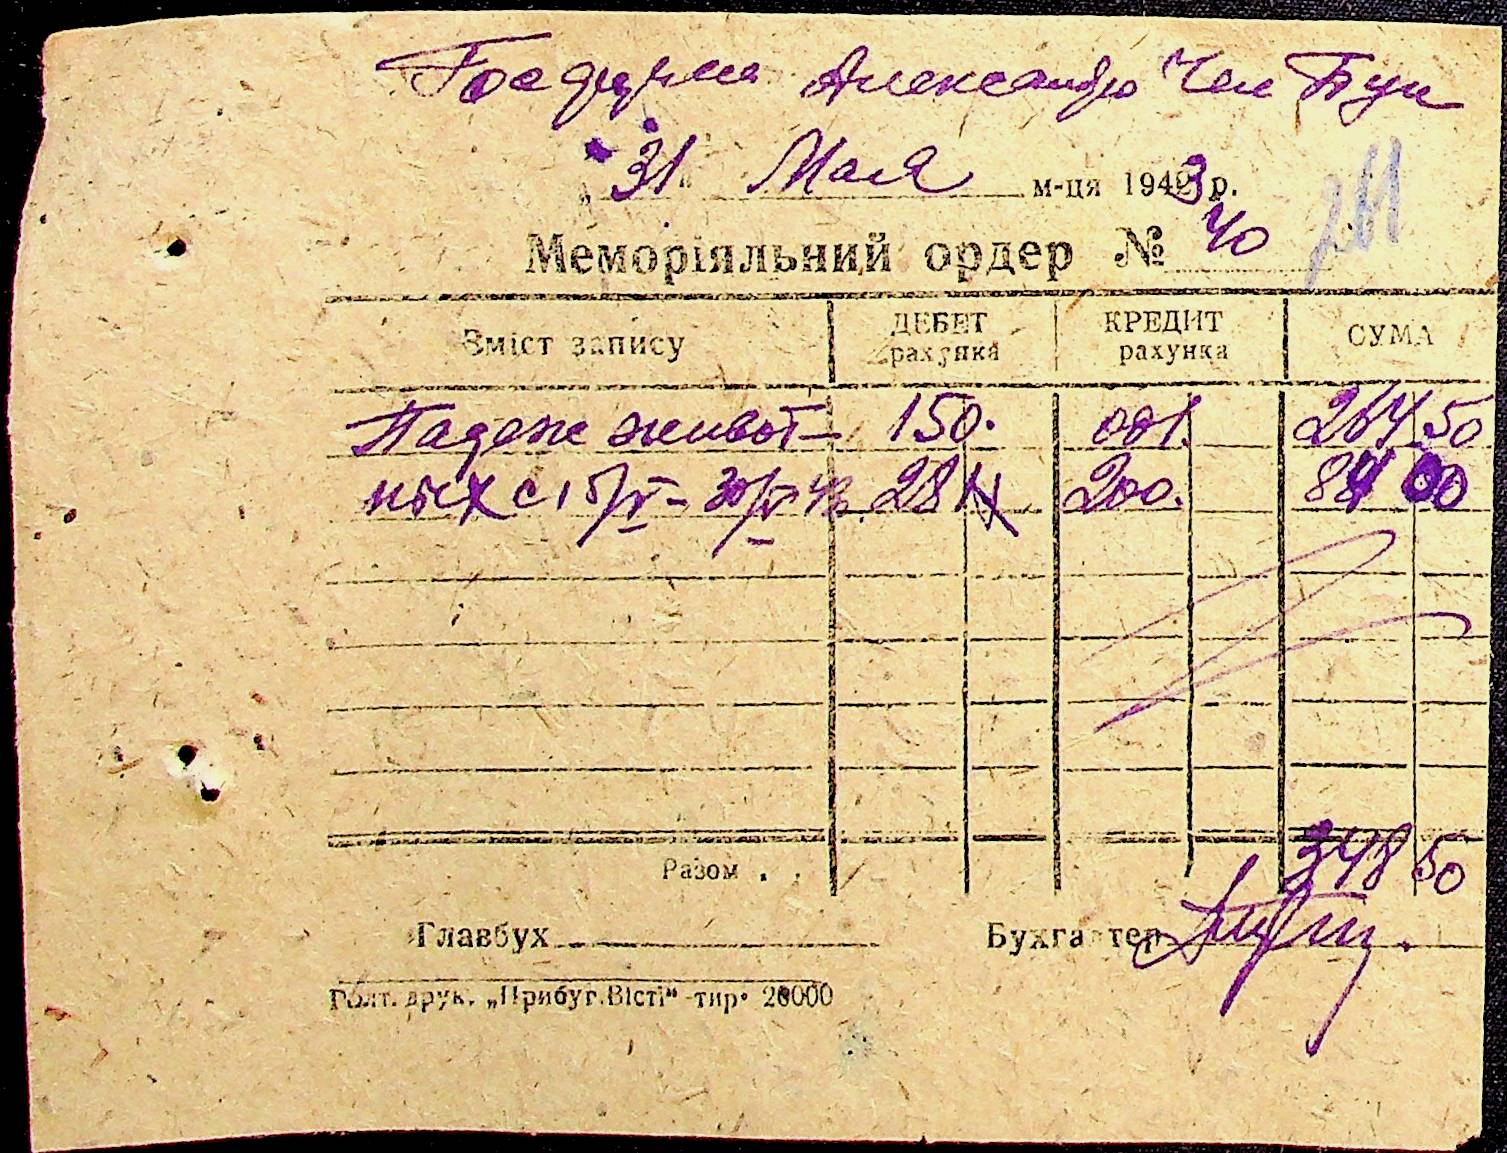 Госферма Александро
„31“ Мая м-ця 1943 р.
Меморіяльний ордер № 40
211
Зміст запису ДЕБЕТ рахунка КРЕДИТ рахунка СУМА
Падеж живот- 150. 001. 264 50
ных с 15/V - 30/V 43. 281 200. 84 00
Разом . . 348 50
Главбух Бухгалтер
Голт. друк. „Прибуг.Вісті“ тир. 20000